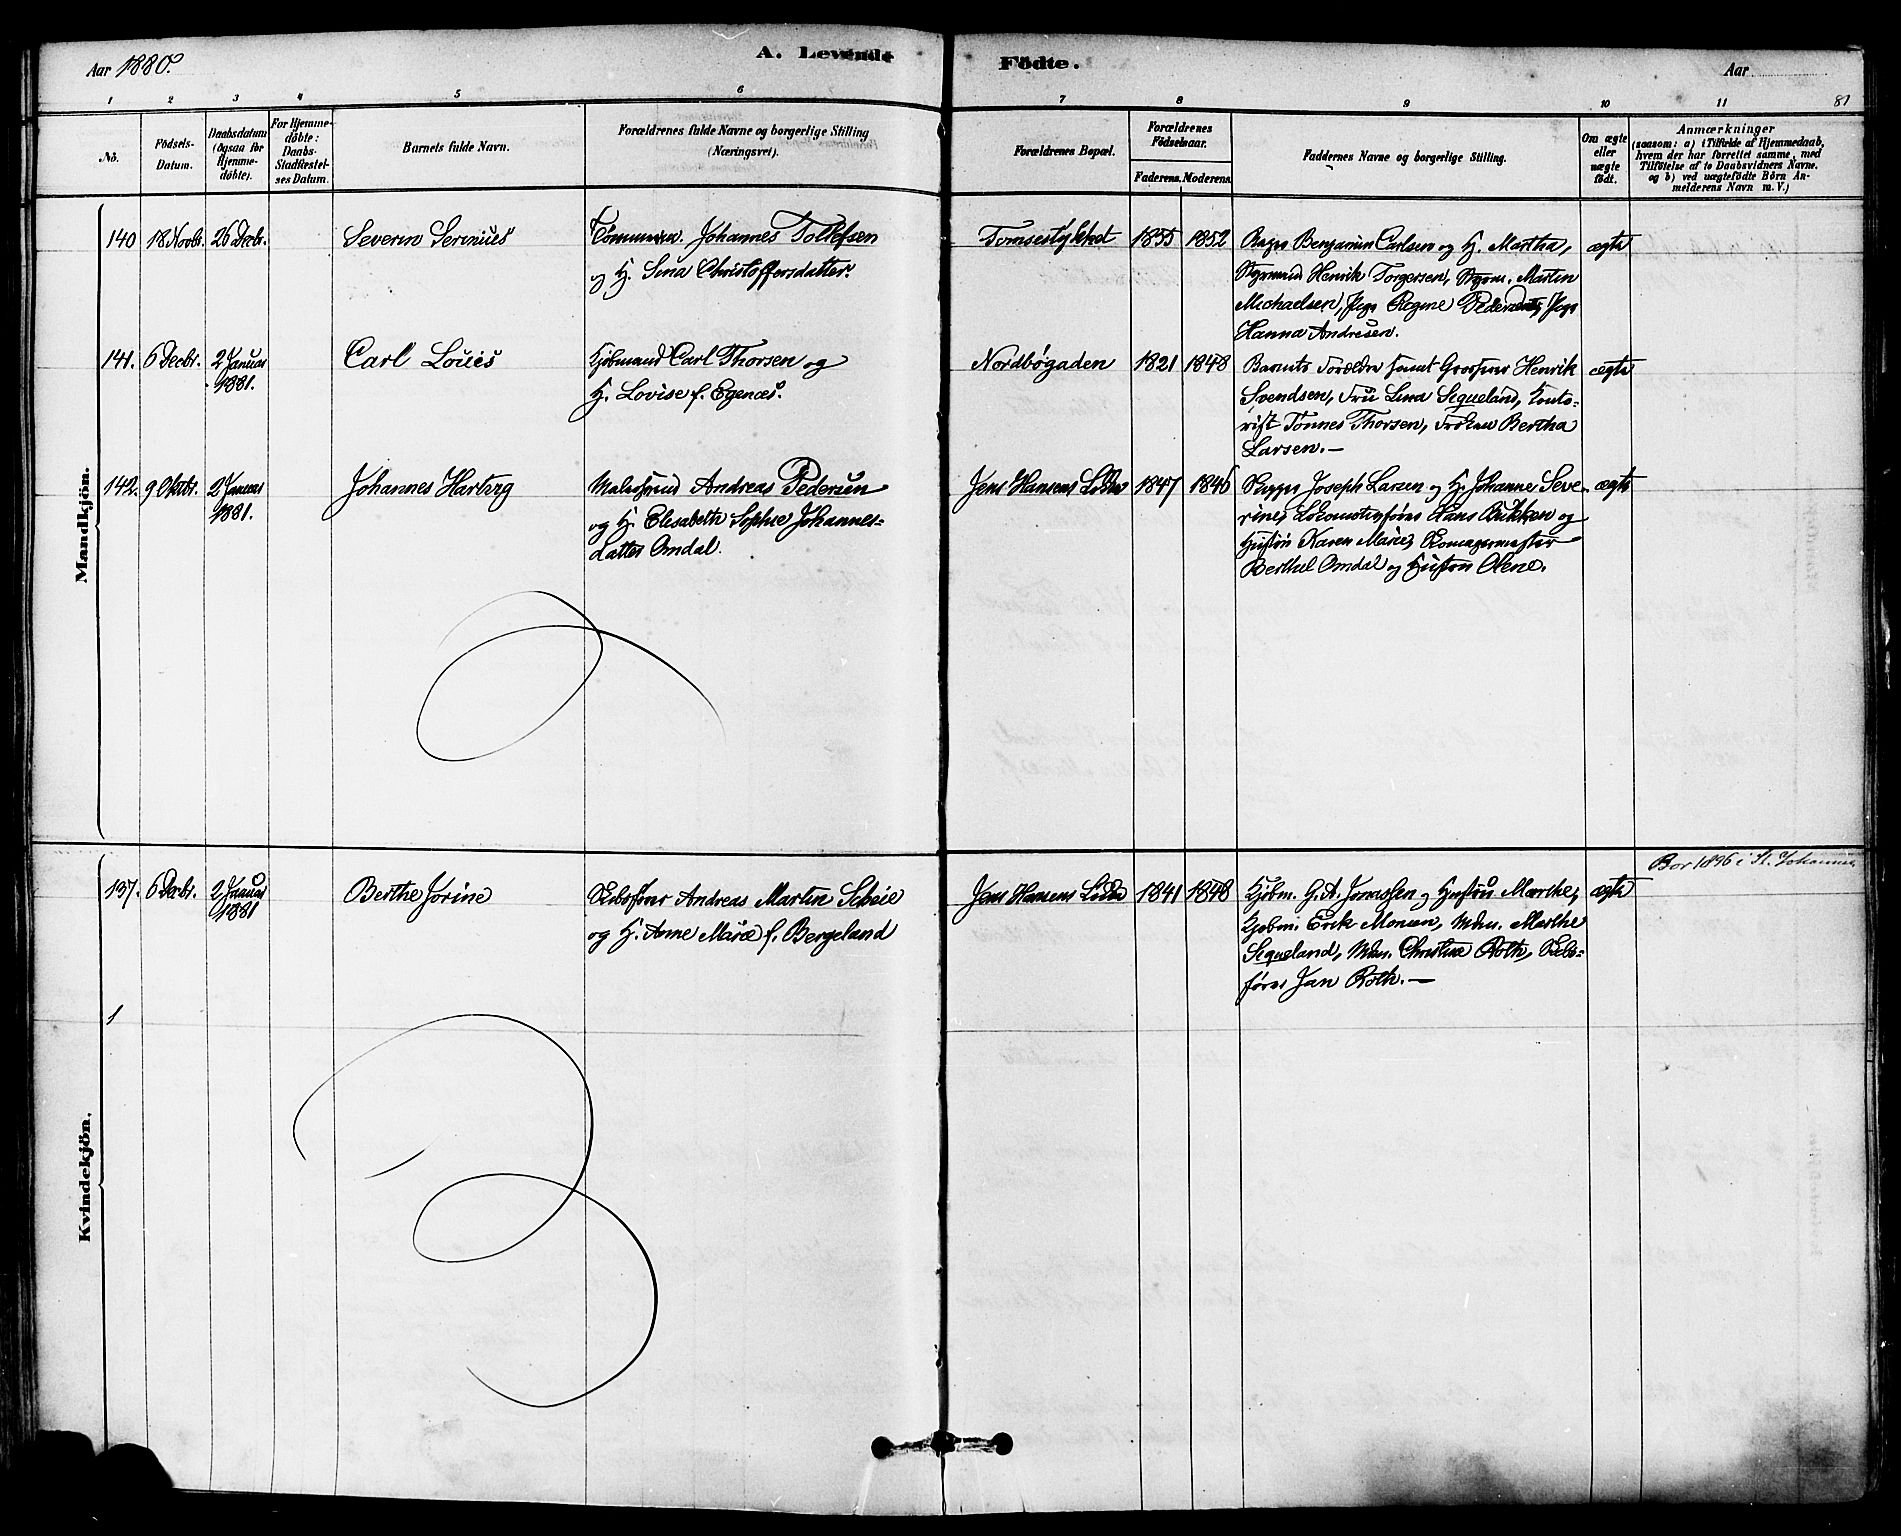 Aar 1880.
A. Levende Födte.
Aar
1 2 3 4 5 6 7 8 9 10 11 81
No.
Födsels-Datum.
Daabsdatum (ogsaa for Hjemme-döbte).
For Hjemme-döbte: Daabs-Stadfæstel-ses Datum.
Barnets fulde Navn.
Forældrenes fulde Navne og borgerlige Stilling
(Næringsvei).
Forældrenes Bopæl.
Forældrenes Födselsaar.
Faderens. Moderens.
Faddernes Navne og borgerlige Stilling.
Om ægte eller uægte födt.
Anmærkninger
(saasom: a) i Tilfælde af Hjemmedaab,
hvem der har forrettet samme, med
Tilföielse af to Daabsvidners Navne.
og b) ved uægtefödte Börn An-
melderens Navn m. V.)
Mandkjön.
140 18 Novbr. 26 Decbr. Severin Serinius Tömmerm. Johannes Tollefsen Tomsestykket 1855 1852 Benjamin Carlsen og H. Martha, ægte
og H. Sina Christoffersdatter. Styrmand Henrik Torgersen, Styrm. Martin
Michaelsen, Pige Regine Pige
Hanna Andresen.
141. 6 Decbr. 2 Januar Carl Louis Kjöbmand Carl Thorsen og Nordbögaden 1821 1848 Barnets Forældre samt Grosserer Henrik ægte
1881. H. Lovise f. Egenæs. Svendsen, Fru Lina Siqueland, Konto-
rist Tönnes Thorsen, Fröken Bertha
Larsen.—
142. 9 Oktbr. 2 Januar Johannes Harberg Andreas Pedersen Jens Hansens Lökke 1847 1846 Joseph Larsen og H. Johanne Seve- ægte
1881. og H. Elisabeth Sophie Johannes- rine, Lokomotivförer Hans Bukken og
datter Omdal. Hustru Karen Marie,
Berthel Omdal og Hustru Olene.
Kvindekjön.
Bor 1896 i St. Johannis
137. 6 Decbr. 2 Januar Berthe Jorine Skibsförer Andreas Martin Scheie Jens Hansens Lökke 1841 1848 Kjöbm. G. A. Jonassen og Hustru Marthe, ægte
1881 og H. Anne Marie f. Bergeland Kjöbm. Erik Monsen, Mdm. Marthe
Siqueland, Mdm. Christine Roth, Skibs-
förer Jan Roth.—
1